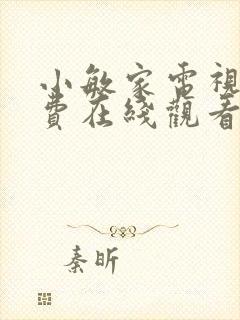 小敏家電視
費在綫觀看
秦昕